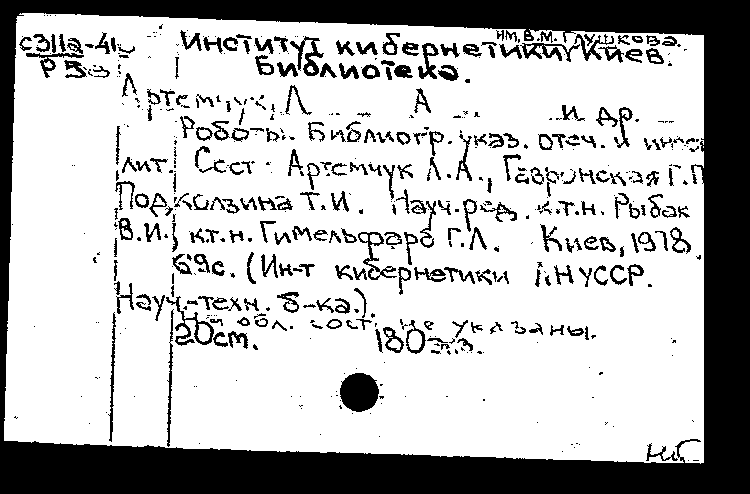 им. В.М. Глушкова.
с311а-41 Институт кибернетики, Киев.
Р58 Библиотека.
Артемчук, Л А и др.
Роботы. Библиогр. указ. отеч. и иностр
лит. Сост. Артемчук Л.А., Гавронская Г.П
Подколзина Т.И. Науч. ред. к.т.н. Рыбак
В.И., к.т.н. Гимельфарб Г.Л. Киев, 1978.
69с. (Ин-т кибернетики АНУССР.
Науч.-техн. б-ка).
На обл. сост. не указаны.
20см. 180 экз.